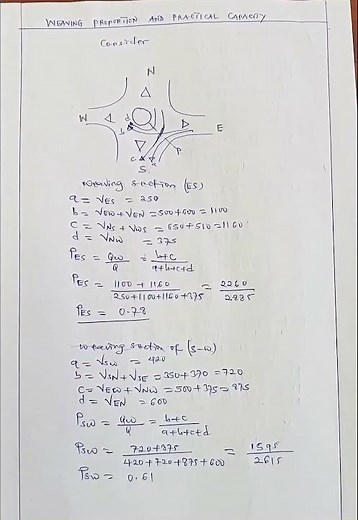 WEAVING PROPORTION AND PRACTICAL CAPACITY
Consider
N
W
E
S
d
b
c
a
P
Weaving section (ES)
a = VES = 250
b = VEW + VEN = 500 + 600 = 1100
c = VNS + VWS = 650 + 510 = 1160
d = VNW = 375
PES = QW/Q = b+c/a+b+c+d
PES = 1100 + 1160/250+1100+1160+375 = 2260/2885
PES = 0.78
Weaving section of (S-W)
a = VSW = 420
b = VSN + VSE = 350 + 370 = 720
c = VEW + VNW = 500 + 375 = 875
d = VEN = 600
PSW = QW/Q = b+c/a+b+c+d
PSW = 720+875/420+720+875+600 = 1595/2615
PSW = 0.61